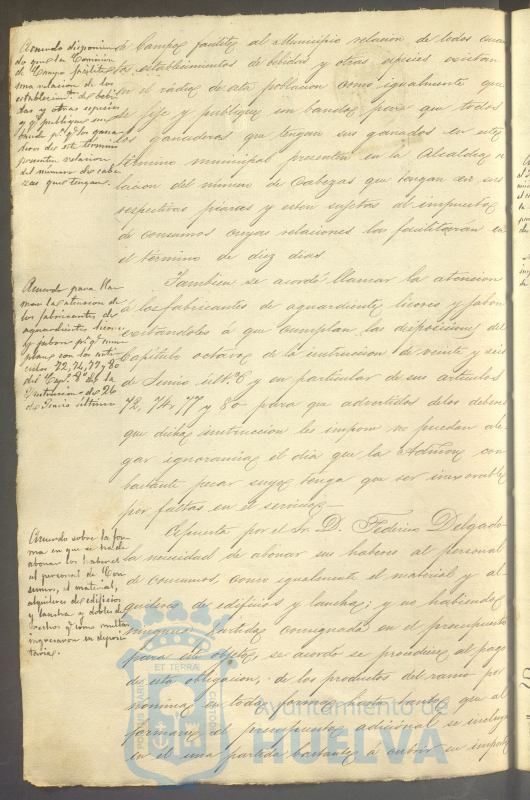 Acuerdo disponien
do que la Comision
de Campo facilite
una relacion de los
establecimtos de bebi
das y otras especies
y qe publique un
bando pa qe los gana
deros de este término
presenten relacion
del número de cabe
zas que tengan.
de Campo facilite al Municipio relacion de todos cuan
tos establecimientos de bebidas y otras especies existan
en el radio de esta poblacion como igualmente que
se fije y publique un bando, para que todos
los ganaderos que tengan sus ganados en este
término municipal presenten en la Alcaldia re
lacion del número de Cabezas que tengan en sus
respectivas piaras y esten sujetas al impuesto
de consumos cuyas relaciones las facilitarán en
el término de diez dias.
Acuerdo para lla
mar la atencion de
los fabricantes de
aguardiente, licores
y jabon pa qe cum
plan con los artí
culos 72, 74, 77 y 80
del Cap. 8º de la
Instruccion de 26
de Junio último
Tambien se acordó llamar la atencion
á los fabricantes de aguardiente, licores y jabon
excitándoles á que cumplan las disposiciones del
Capítulo octavo de la instruccion de veinte y seis
de Junio últº y en particular de sus artículos
72, 74, 77 y 80 para que advertidos de los deberes
que dicha instruccion les impone no puedan ale
gar ignorancia el dia que la Admon con
bastante pesar suyo tenga que ser inexorable
por faltas en el servicio.
Acuerdo sobre la for
ma en que se ha de
abonar los haberes
al personal de Con
sumos, el material,
alquileres de edificios
y lancha y dobles de
rechos qe como multas
ingresaron en deposi
taria.
Expuesta por el Sr. D. Federico Delgado
la necesidad de abonar sus haberes al personal
de consumos, como igualmente el material y al
quileres de edificios y lancha; y no habiendo
ninguna partida consignada en el presupuesto
para este objeto, se acordó se procediese al pago
de esta obligacion, de los productos del ramo por
nóminas en toda forma, hasta tanto que al
formarse el presupuesto adicional se incluya
en él una partida bastante á cubrir su importe
PORTUS MARIS
ET TERRAE
CUSTODIA
Ayuntamiento de
HUELVA